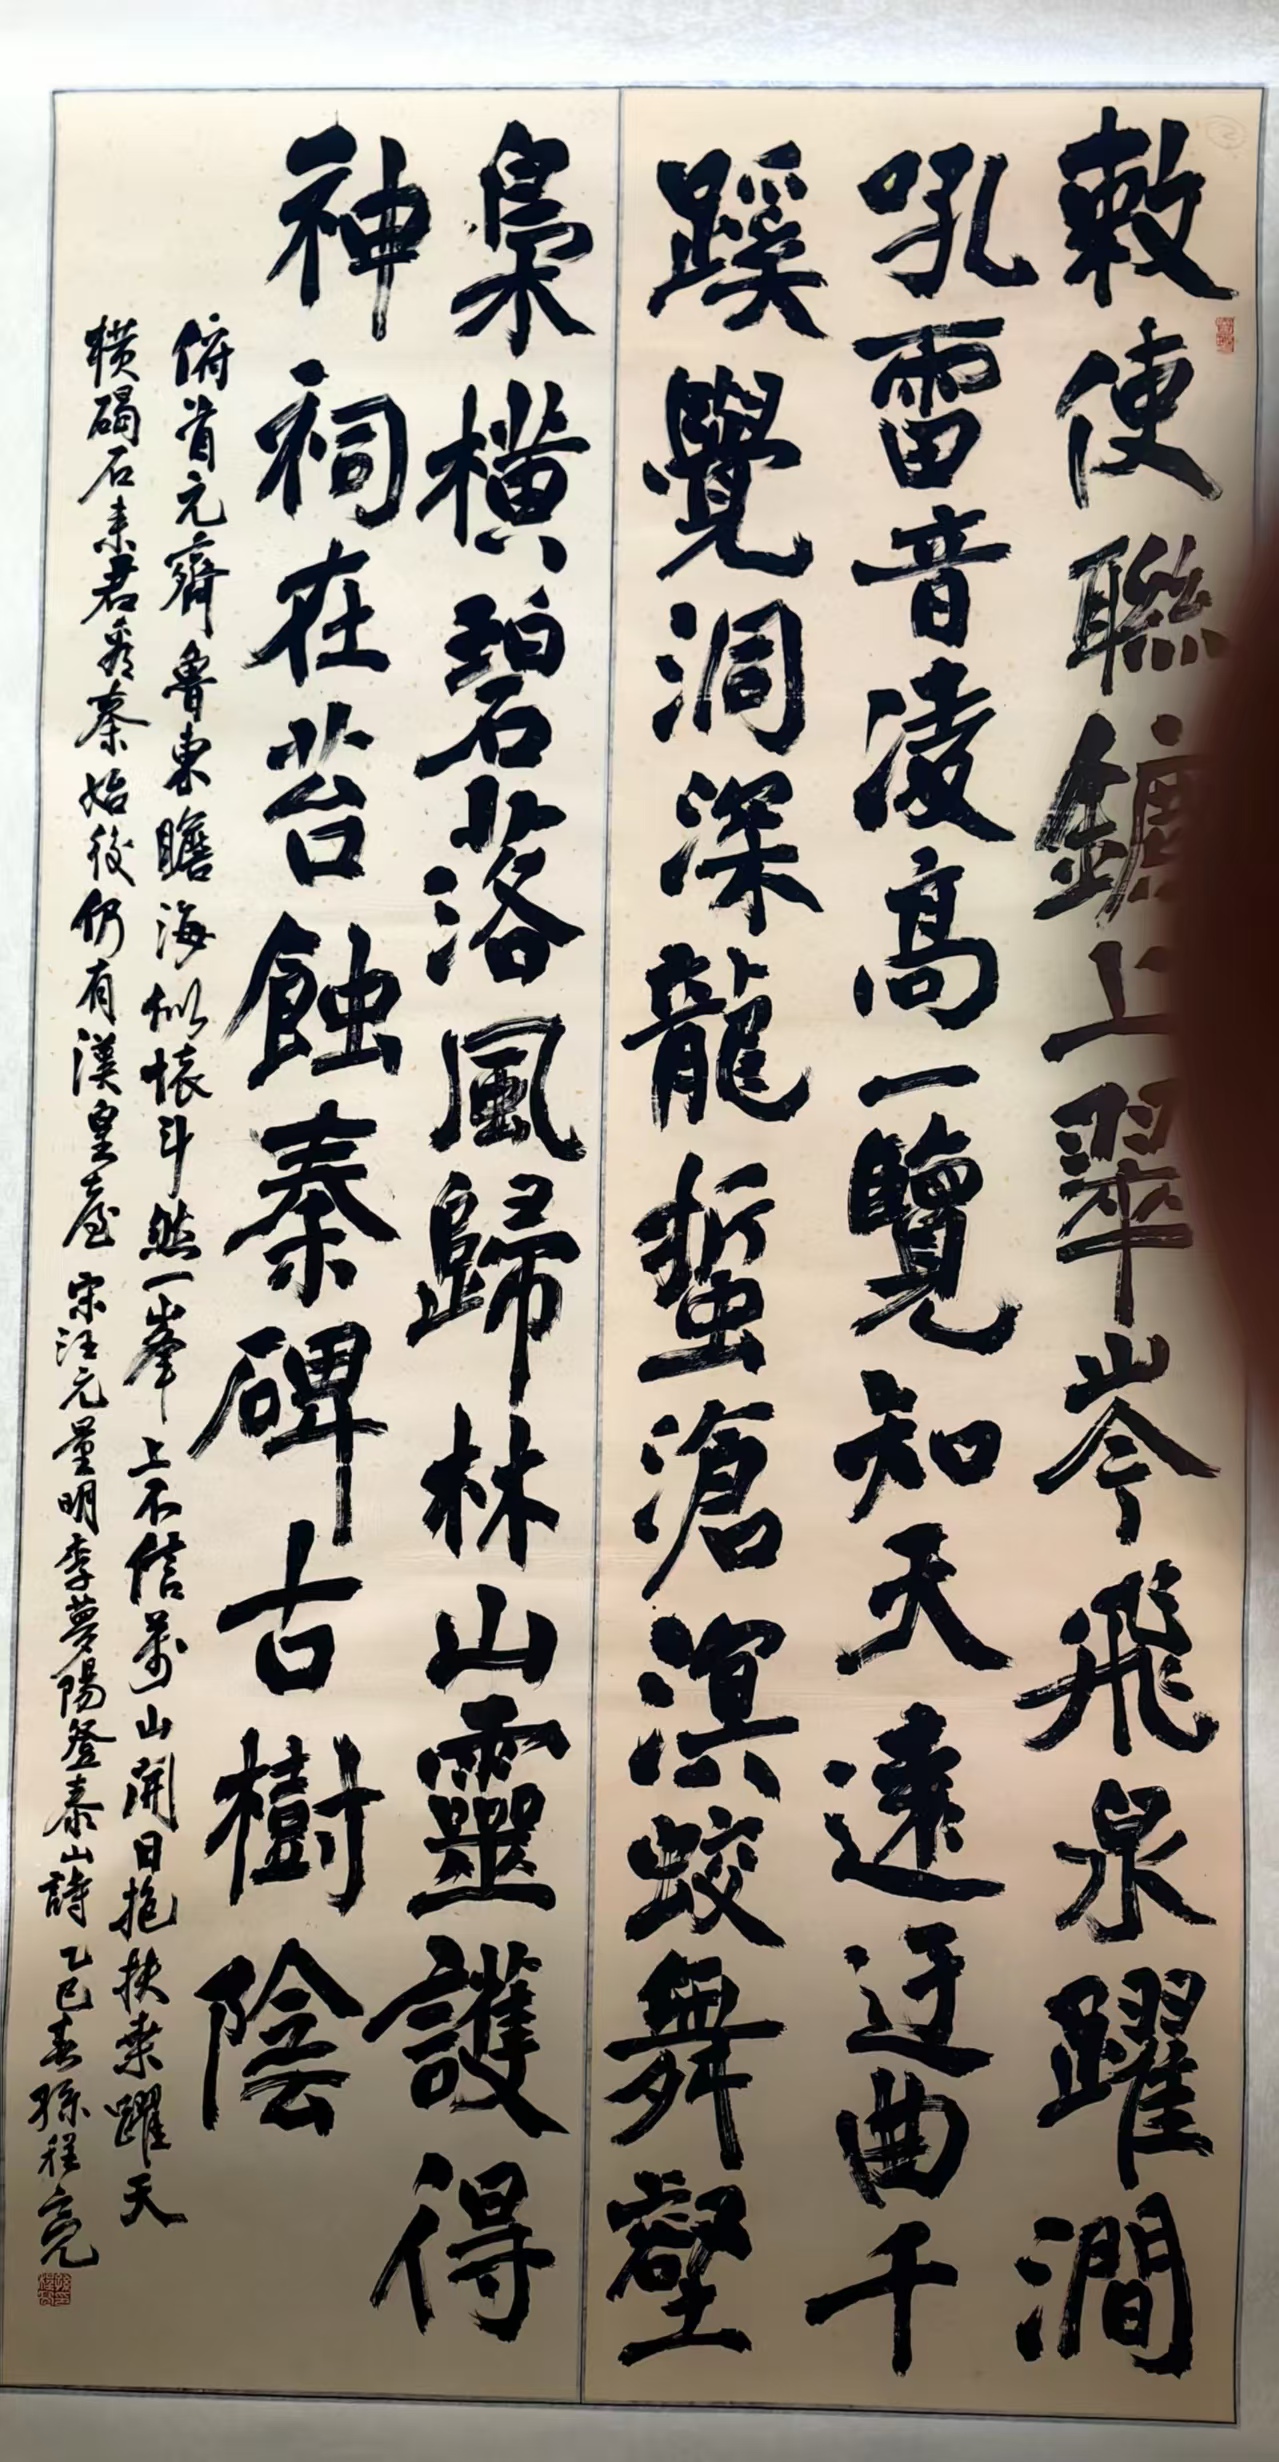 敕使聯鑣上翠岑飛泉躍澗
吼雷音凌高一覽知天遠迂曲千
蹊覺洞深龍蜇滄溟蛟舞壑
梟橫碧落風歸林山靈護得
神祠在苔蝕秦碑古樹陰
俯首元齊魯東瞻海似懷斗然一峯上不信萬山開日抱扶桑躍天
橫碣石來君看秦始後仍有漢皇臺宋汪元量明李夢陽登泰山詩乙巳春孫程亮